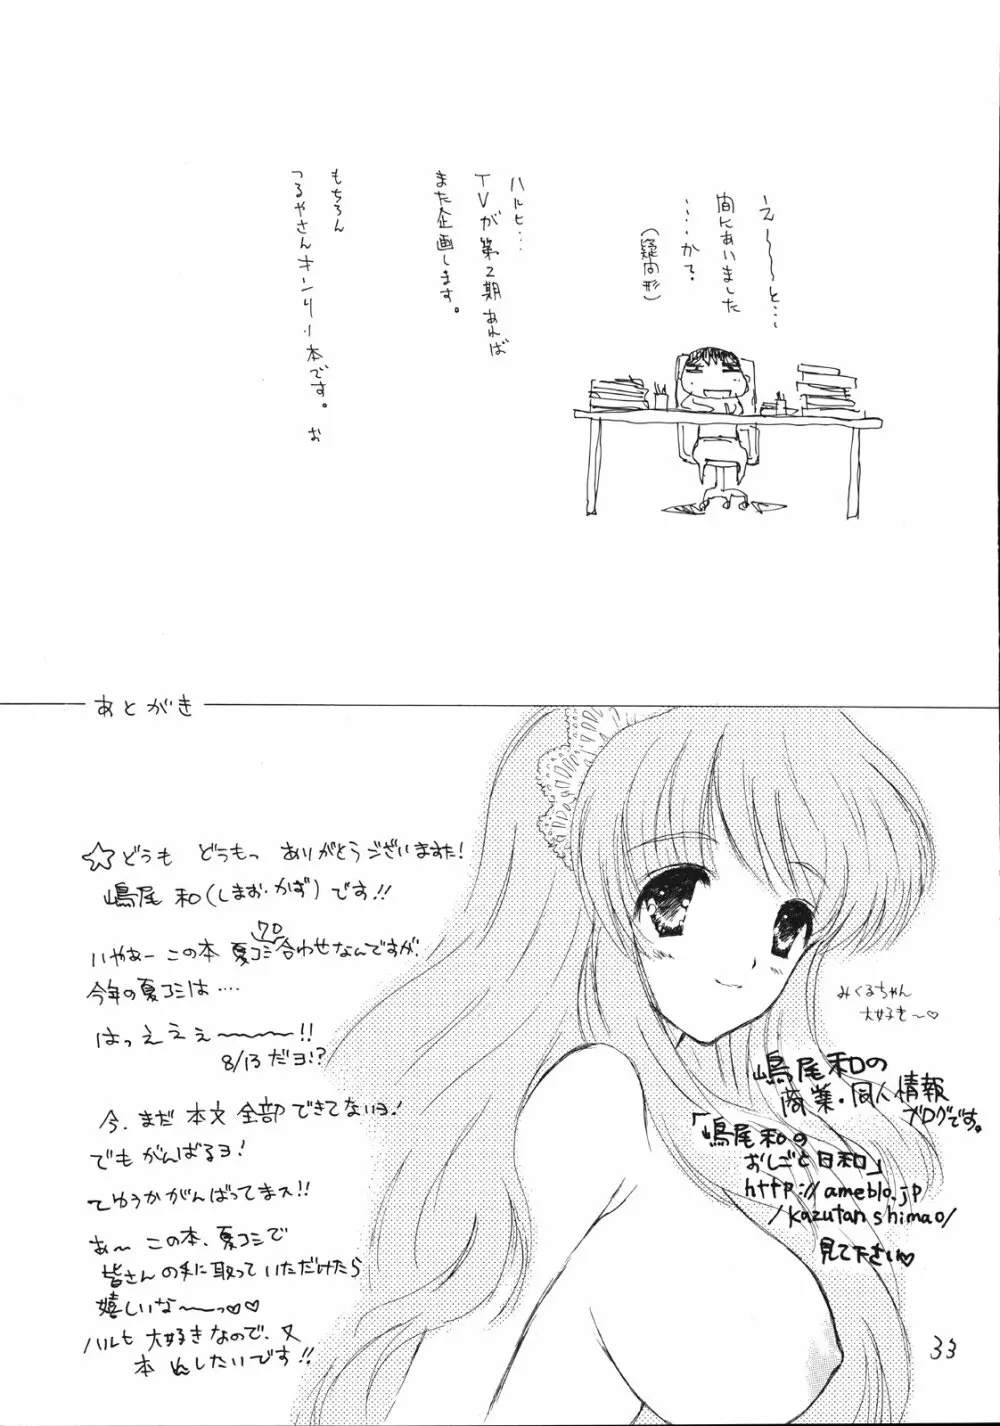 えーーーと…
間にあいました
……かな?
(疑問形)
ハルヒ…
TVが第2期あれば
また企画します。
もちろん
つるやさんオンリー本です。
お
あとがき
☆どうも どうもっ ありがとうございますた!
嶋尾 和(しまお・かず)です!!
いやぁー この本 夏コミ合わせなんですが、
今年の夏コミは‥‥
はっえええ〜〜〜!!
8/13だヨ!?
今、まだ 本文 全部 できてないヨ!
でも がんばるヨ!
てゆうか がんばってまス!!
あ〜 この本、夏コミで
皆さんの手に取っていただけたら
嬉しいな〜〜っ♡♡
ハルヒ 大好きなので、又
本 したいです!!
みくるちゃん
大好き〜♡
嶋尾 和の
商業・同人情報
ブログです。
「嶋尾 和の
おしごと日和」
http://ameblo.jp
/kazutanshimao/
見て下さい♡
33